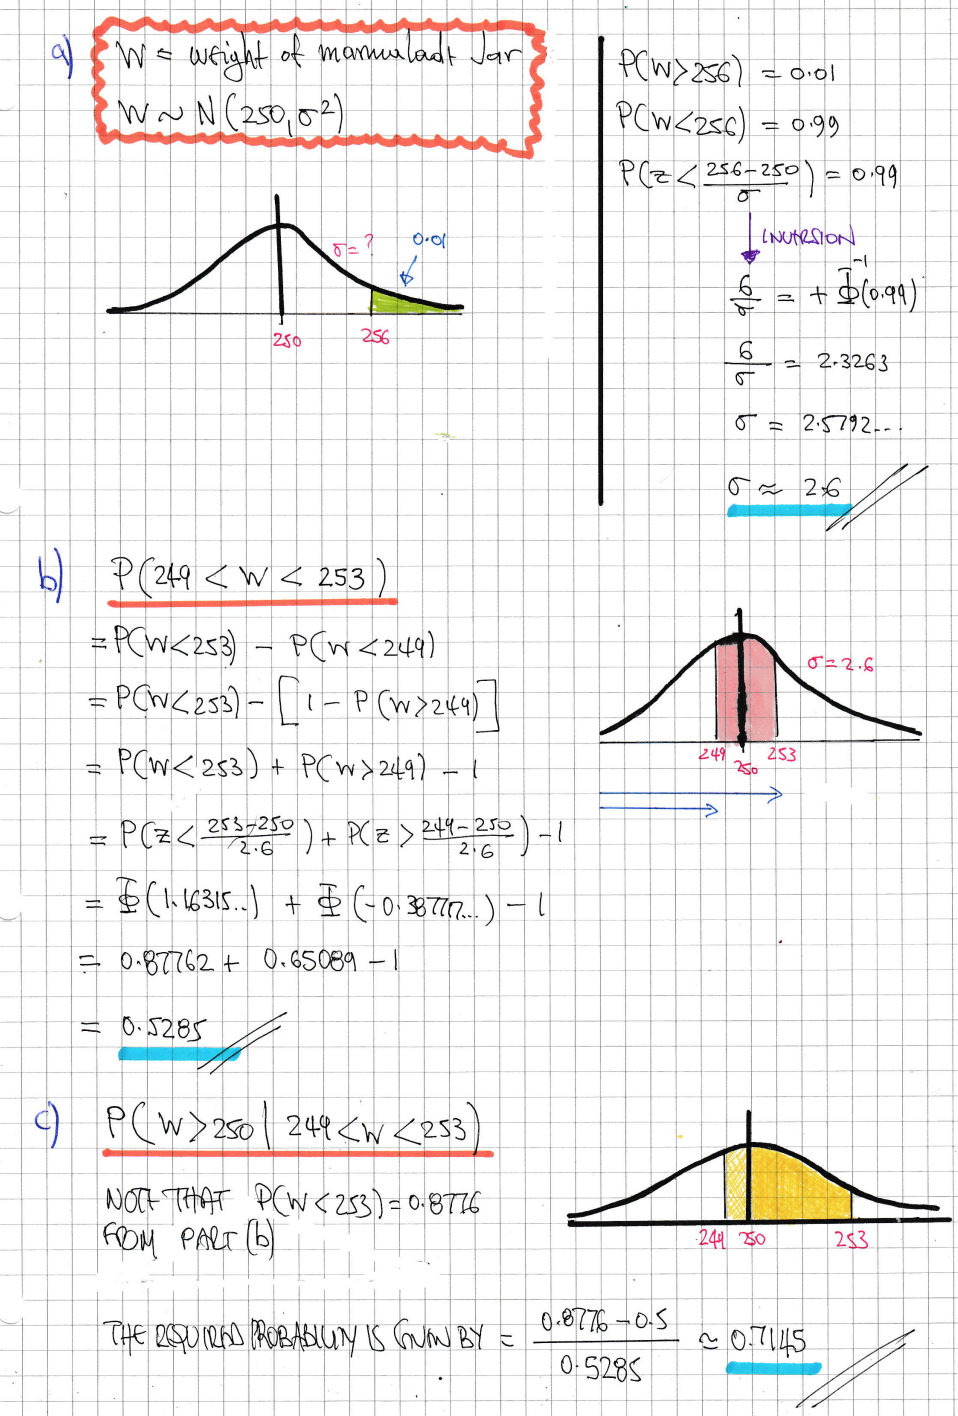 a) W = weight of marmaladt Jar
W ~ N(250, σ²)
σ = ?
0.01
250 256
P(W>256) = 0.01
P(W<256) = 0.99
P(z < (256-250)/σ) = 0.99
INVERSION
6/σ = + Φ⁻¹(0.99)
6/σ = 2.3263
σ = 2.5792...
σ ≈ 2.6
b) P(249 < W < 253)
= P(W<253) - P(W<249)
= P(W<253) - [1 - P(W>249)]
= P(W<253) + P(W>249) - 1
= P(z < (253-250)/2.6) + P(z > (249-250)/2.6) - 1
= Φ(1.16315..) + Φ(-0.38777...) - 1
= 0.87762 + 0.65089 - 1
= 0.5285
σ = 2.6
249 250 253
c) P(W>250 | 249<W<253)
NOTE THAT P(W<253) = 0.8776
FROM PART (b)
249 250 253
THE REQUIRED PROBABILITY IS GIVEN BY = (0.8776 - 0.5)/0.5285 ≈ 0.7145